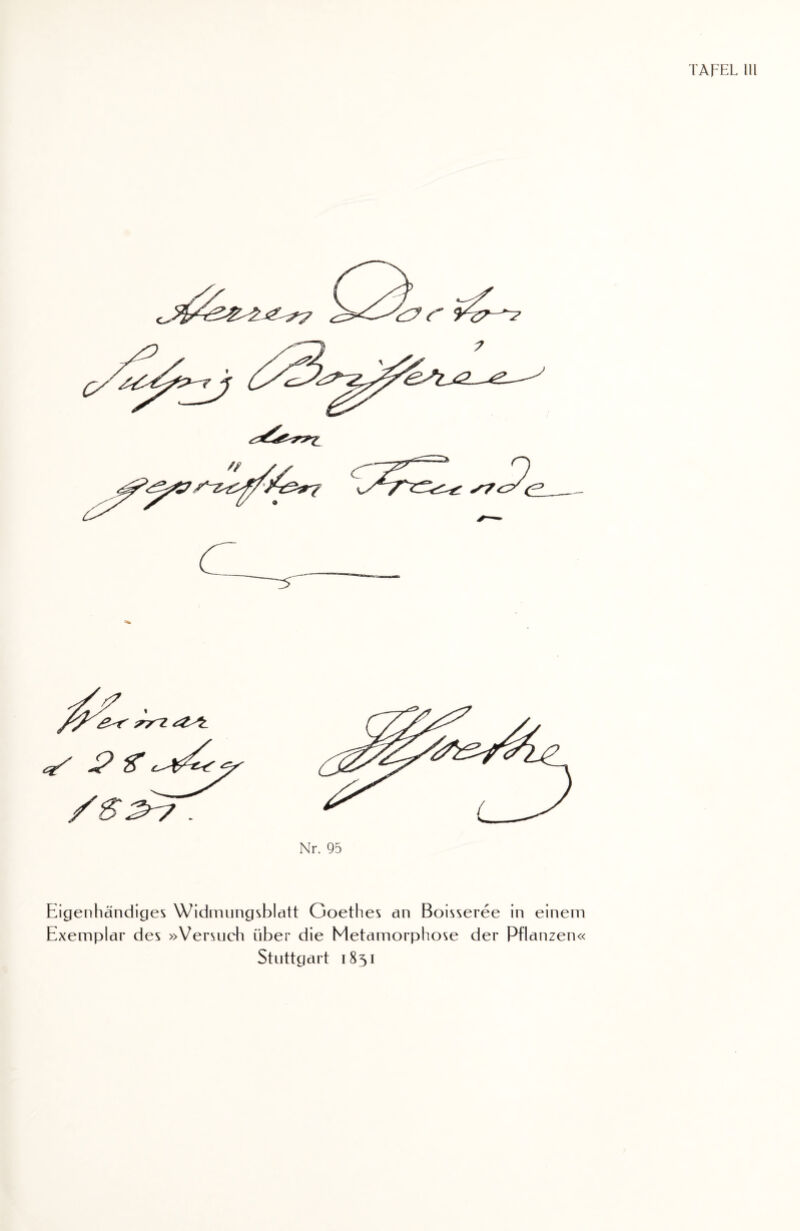 TAFEL III
Herren Doctor
Sulpiz Boisseree
dem
geprüften Freunde
Weimar
d 28 Aug
1831.
JWGoethe
Nr. 95
Eigenhändiges Widmungsblatt Goethes an Boisserée in einem
Exemplar des »Versuch über die Metamorphose der Pflanzen«
Stuttgart 1831